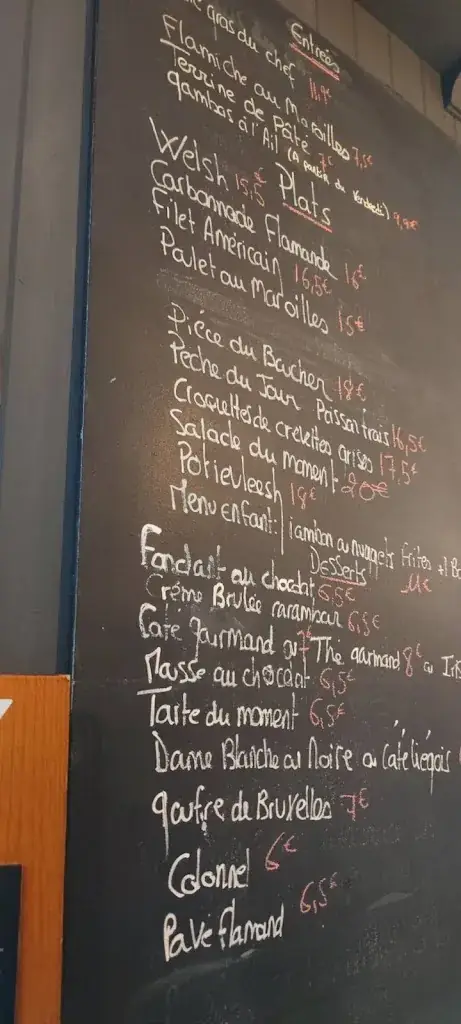 Entrées
gras du chef 11,9€
Flamiche au Maroilles 7,5€
Terrine de Pâté 7€
gambas à l'Ail (A partir du Vendredi) 9,9€
Plats
Welsh 15,5€
Carbonnade Flamande 16€
Filet Américain 16,5€
Poulet au Maroilles 15€
Pièce du Boucher 18€
Peche du Jour Poisson frais 16,5€
Croquettes de crevettes grises 17,5€
Salade du moment 20€
Potjevleesh 18€
Menu enfant: jambon ou nuggets frites +1
11€
Desserts
Fondant au chocolat 6,5€
Créme Brulée carambar 6,5€
Café gourmand ou Thé gourmand 8€ ou
Mousse au chocolat 6,5€
Tarte du moment 6,5€
Dame Blanche ou Noire ou Café liégois
gaufre de Bruxelles 7€
Colonnel 6€
Pavé flamand 6,5€